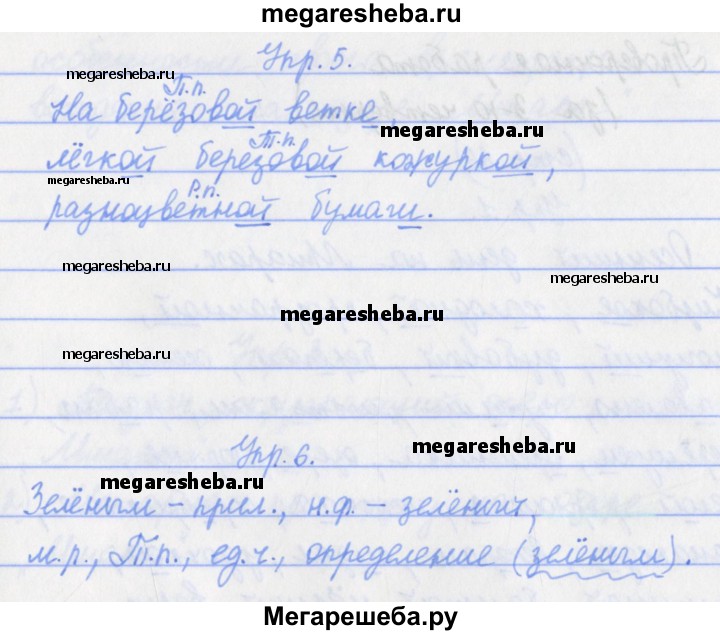 megaresheba.ru
Упр. 5.
megaresheba.ru
П.п.
На берёзовой ветке,
megaresheba.ru
Т.п.
лёгкой березовой кожуркой,
megaresheba.ru
Р.п.
разноцветной бумаги.
megaresheba.ru
megaresheba.ru
megaresheba.ru
megaresheba.ru
Упр. 6.
megaresheba.ru
megaresheba.ru
Зелёным – прил., н.ф. – зелёный,
м.р., Т.п., ед.ч., определение (зелёным).
Мегарешеба.ру